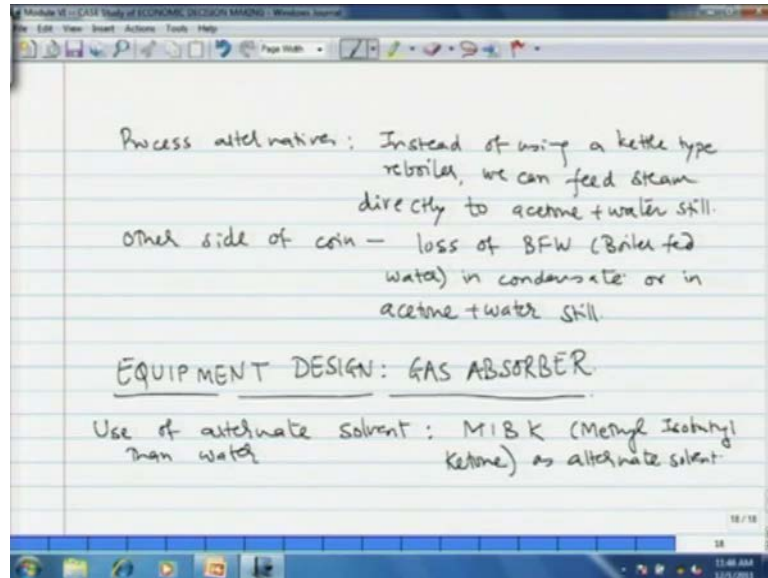 Module VI -- CASE Study of ECONOMIC DECISION MAKING - Windows Journal
File Edit View Insert Actions Tools Help
Page Width
Process alternatives : Instead of using a kettle type
reboiler, we can feed steam
directly to acetone + water still.
Other side of coin — loss of BFW (Boiler fed
water) in condensate or in
acetone + water still.
EQUIPMENT DESIGN: GAS ABSORBER
Use of alternate solvent : MIBK (Methyl Isobutyl
Than water Ketone) as alternate solvent
18 / 18
18
11:46 AM
12/5/2013